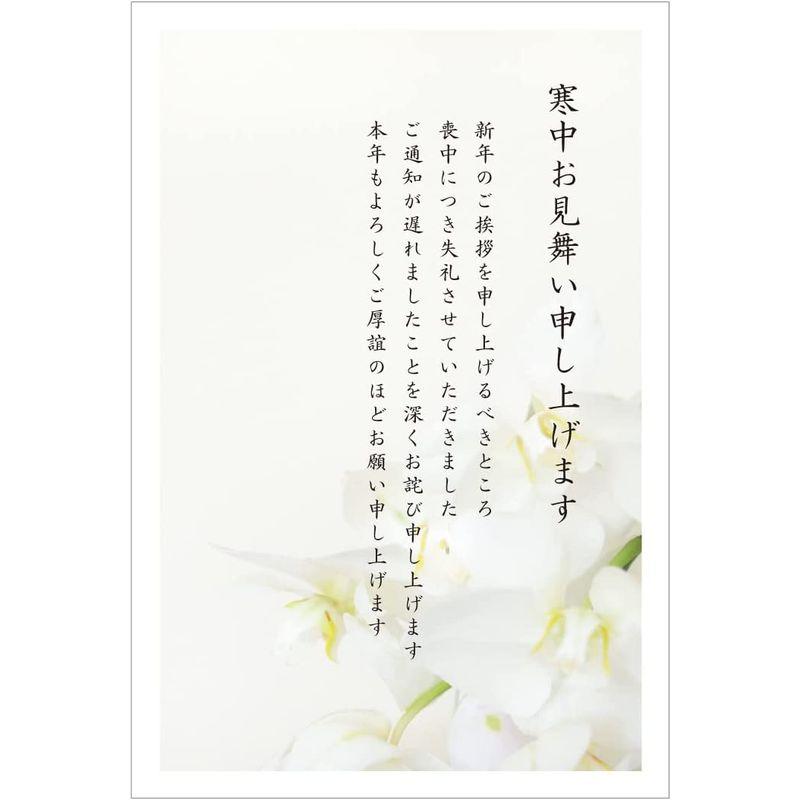 寒中お見舞い申し上げます
新年のご挨拶を申し上げるべきところ
喪中につき失礼させていただきました
ご通知が遅れましたことを深くお詫び申し上げます
本年もよろしくご厚誼のほどお願い申し上げます